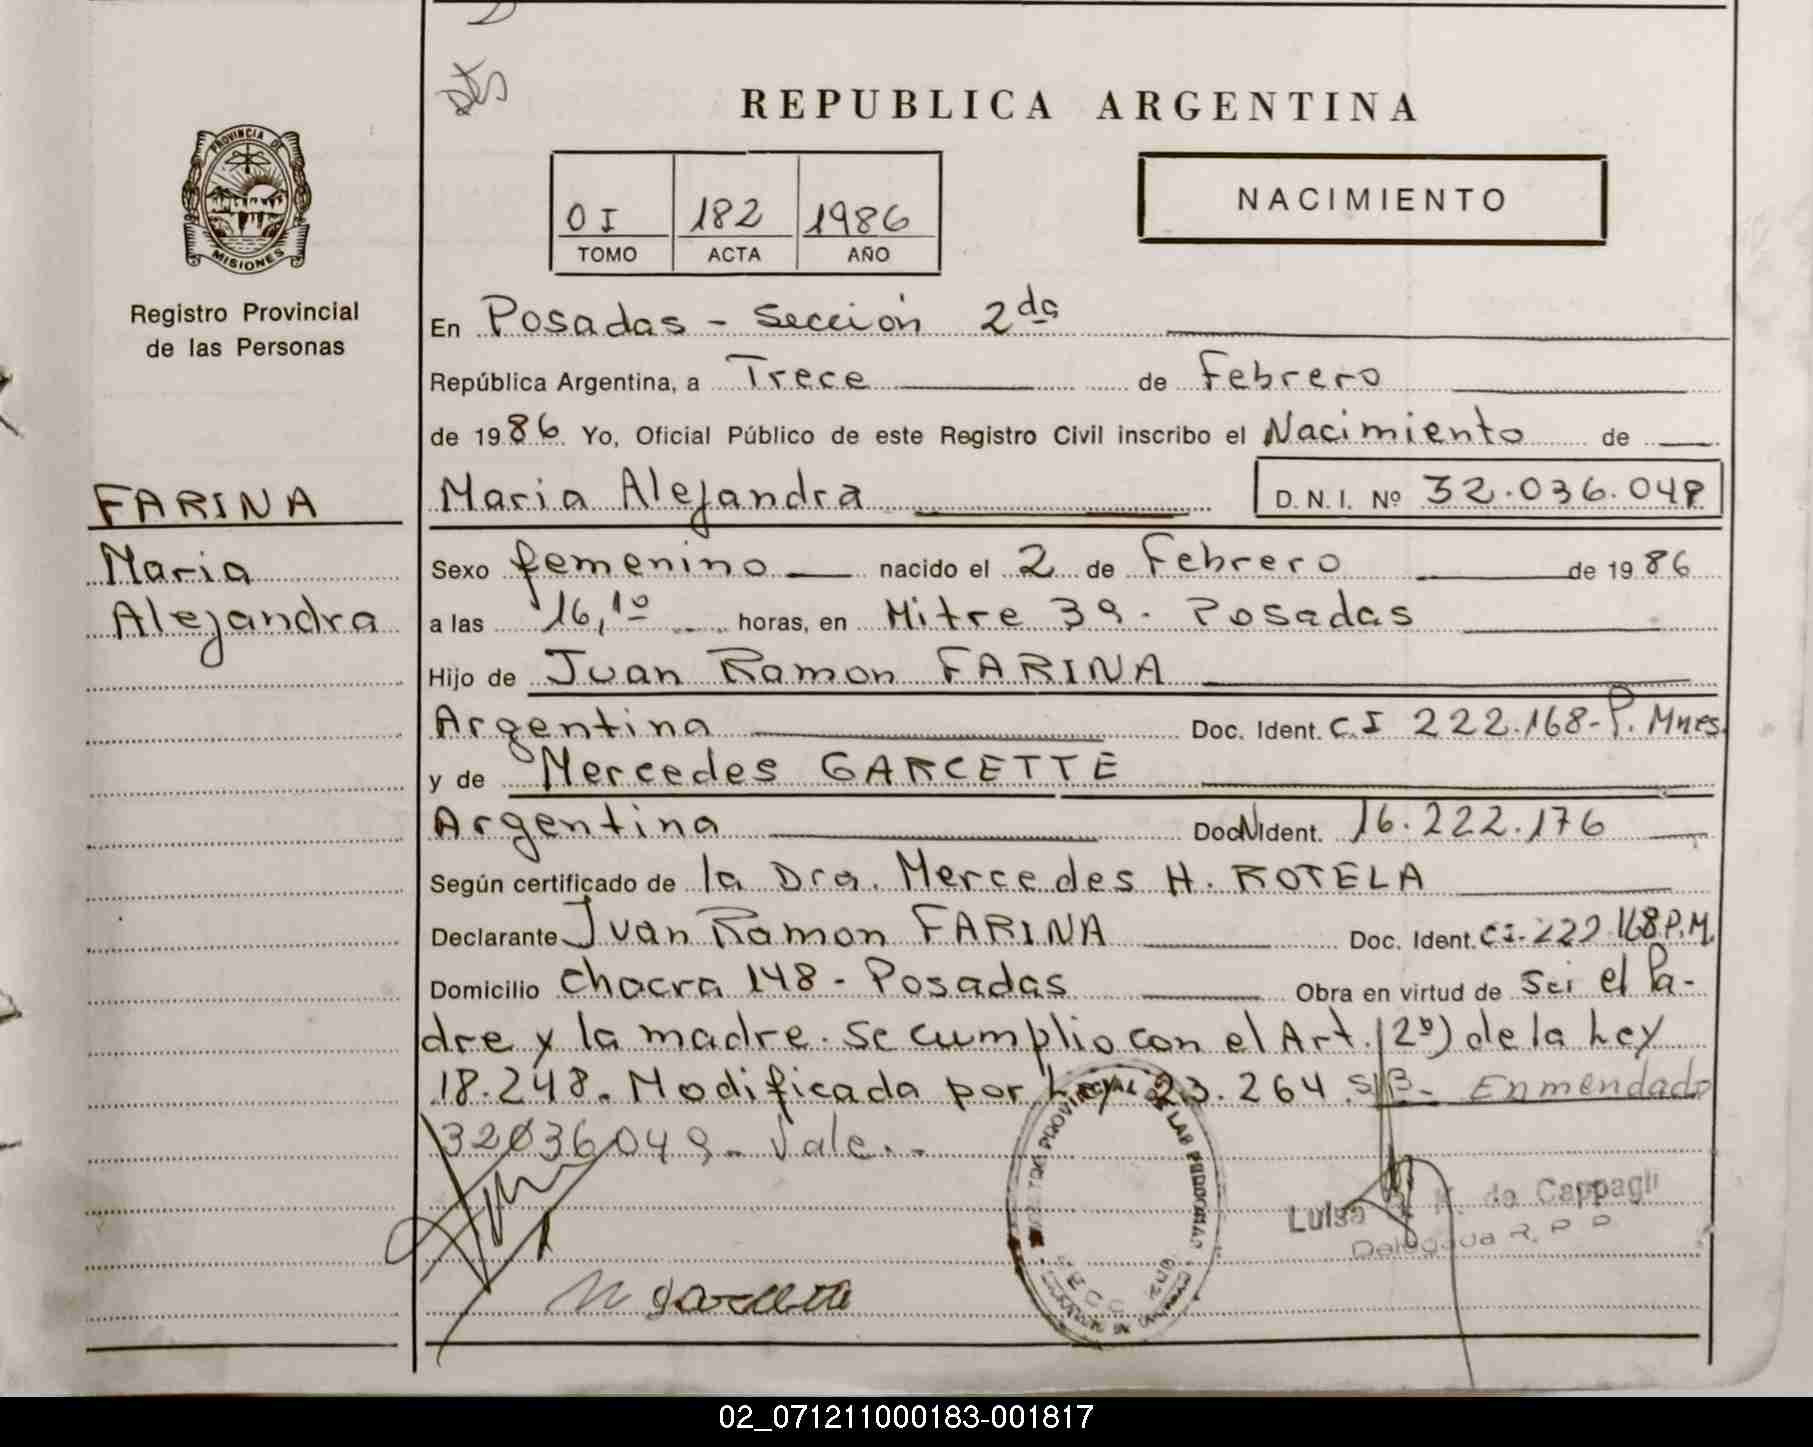 REPUBLICA ARGENTINA
PROVINCIA DE
MISIONES
Registro Provincial
de las Personas
OI 182 1986
TOMO ACTA AÑO
NACIMIENTO
En Posadas - Sección 2da
República Argentina, a Trece de Febrero
de 1986 Yo, Oficial Público de este Registro Civil inscribo el Nacimiento de
FARINA
Maria Alejandra D.N.I. Nº 32.036.049
Maria
Alejandra
Sexo femenino nacido el 2 de Febrero de 1986
a las 16,10 horas, en Mitre 39 - Posadas
Hijo de Juan Ramon FARINA
Argentina Doc. Ident. C.I 222.168-P. Mnes.
y de Mercedes GARCETTE
Argentina Doc. Ident. 16.222.176
Según certificado de la Dra. Mercedes H. ROTELA
Declarante Juan Ramon FARINA Doc. Ident. CI-222.168 P.M.
Domicilio Chacra 148 - Posadas Obra en virtud de ser el Pa-
dre y la madre. Se cumplio con el Art. (2º) de la Ley
18.248. Modificada por Ley 23.264. S/B- Enmendado
32036049- Vale.-
Luisa de Cappagli
Delegada R. P. P.
M garcette
02_071211000183-001817